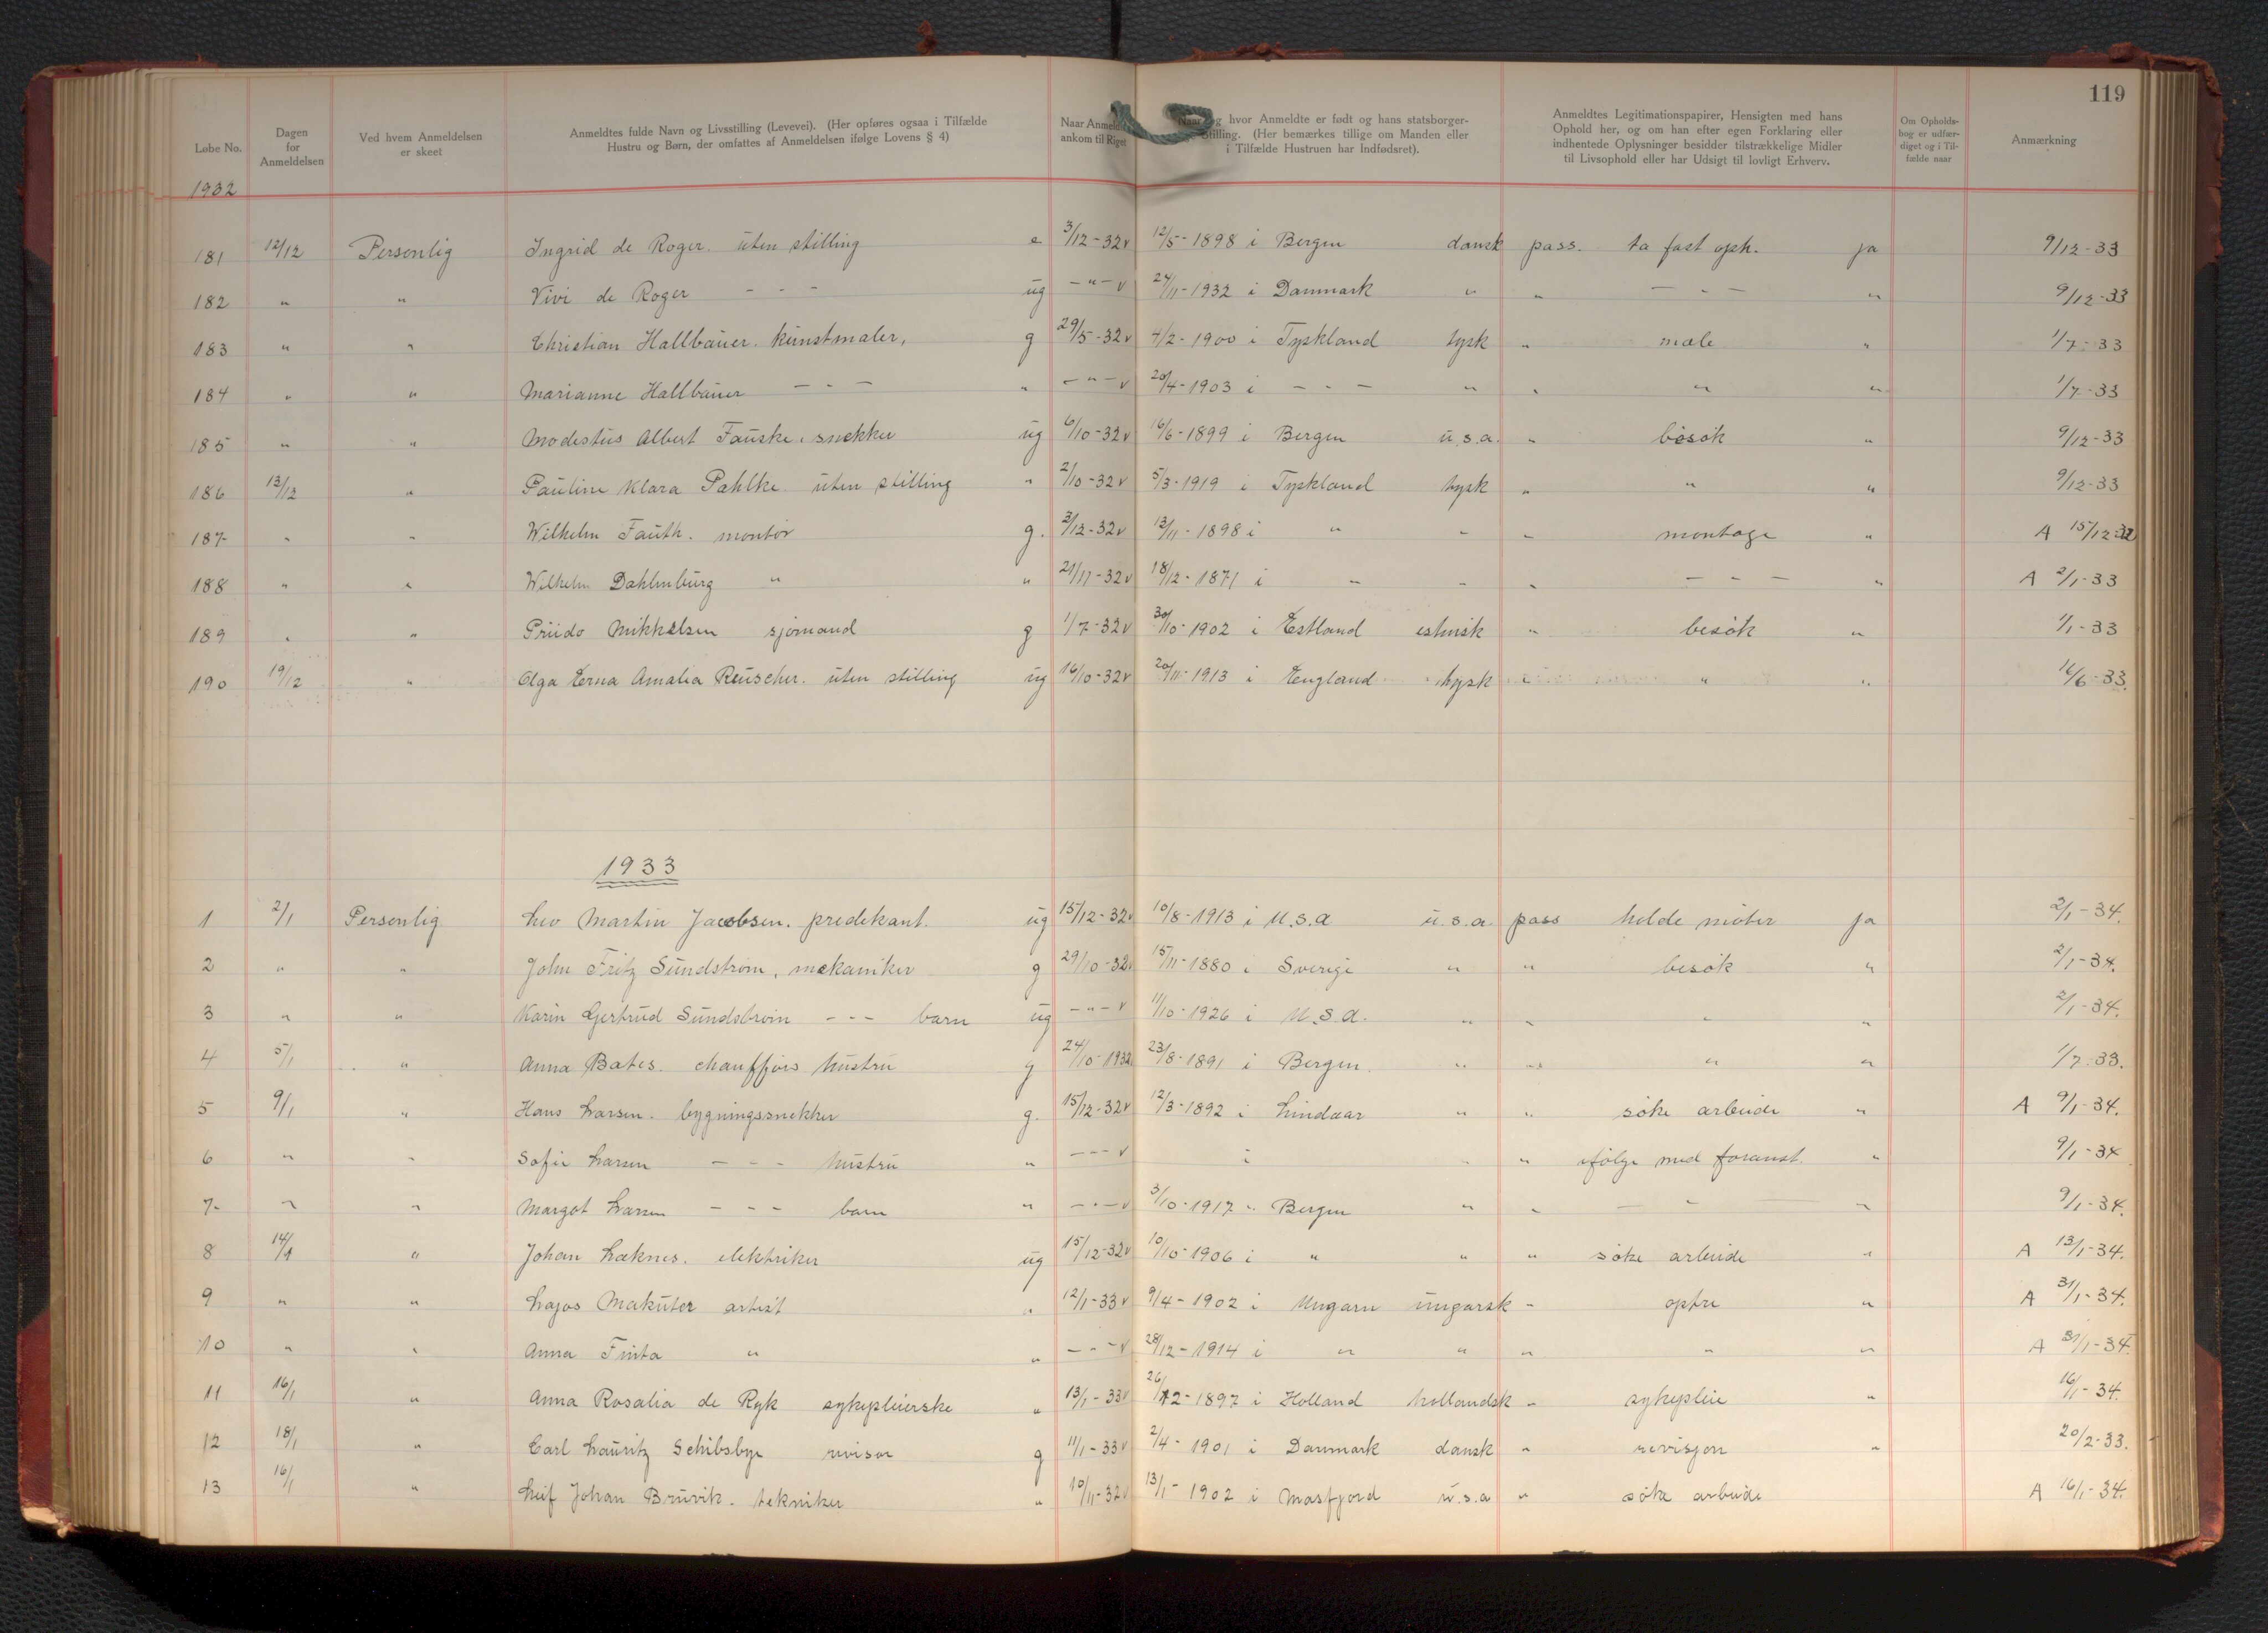 119
Løbe No.
Dagen for Anmeldelsen
Ved hvem Anmeldelsen er skeet
Anmeldtes fulde Navn og Livsstilling (Levevei). (Her opføres ogsaa i Tilfælde Hustru og Børn, der omfattes af Anmeldelsen ifølge Lovens § 4)
Naar Anmeldte ankom til Riget
Naar og hvor Anmeldte er født og hans statsborger- Stilling. (Her bemærkes tillige om Manden eller i Tilfælde Hustruen har Indfødsret).
Anmeldtes Legitimationspapirer, Hensigten med hans Ophold her, og om han efter egen Forklaring eller indhentede Oplysninger besidder tilstrækkelige Midler til Livsophold eller har Udsigt til lovligt Erhverv.
Om Opholds- bog er udfær- diget og i Til- fælde naar
Anmærkning
1932
181 12/12 Personlig Ingrid de Roger. uten stilling e 3/12-32 v 12/5-1898 i Bergen dansk pass. ta fast oph. ja 9/12-33
182 " " Vivi de Roger - - - ug - " - v 24/11-1932 i Danmark " " - - - " 9/12-33
183 " " Christian Hallbauer. kunstmaler, g 29/5-32 v 4/2-1900 i Tyskland tysk " male " 1/7-33
184 " " Marianne Hallbauer - - - " - " - v 20/4-1903 i - - - " " " " 1/7-33
185 " " Modestus Albert Fauske. snekker ug 6/10-32 v 16/6-1899 i Bergen u.s.a. " besøk " 9/12-33
186 13/12 " Pauline Klara Pahlke uten stilling " 2/10-32 v 5/3-1919 i Tyskland tysk " " " 9/12-33
187 " " Wilhelm Fauth. montør g. 3/12-32 v 13/11-1898 i " " " montage " A 15/12-32
188 " " Wilhelm Dahlmburg " " 21/11-32 v 18/12-1871 i " " " - - - " A 2/1-33
189 " " Priido Mikkelsen sjømand g 1/7-32 v 30/10-1902 i Estland estnisk " besøk " 1/1-33
190 19/12 " Olga Erna Amalia Reuscher. uten stilling ug 16/10-32 v 20/11-1913 i England tysk " " " 16/6-33.
1933
1 2/1 Personlig Leo Martin Jacobsen. predikant. ug 15/12-32 v 10/8-1913 i U.S.A u.s.a. pass holde møter ja 2/1-34.
2 " " John Fritz Sundstrøm, mekaniker g 29/10-32 v 15/11-1880 i Sverige " " besøk " 2/1-34.
3 " " Karin Gertrud Sundstrøm - - - barn ug - " - v 11/10-1926 i U.S.A. " " " " 2/1-34.
4 5/1 " Anna Bates. chauffjørs hustru g 24/10-1932 23/8-1891 i Bergen. " " " " 1/7-33.
5 9/1 " Hans Larsen. bygningssnekker g. 15/12-32 v 12/3-1892 i Lindaas " " søke arbeide " A 9/1-34.
6 " " Sofie Larsen - - - hustru " - - - v i " " ifølge med foranst. " 9/1-34
7 " " Margot Larsen - - - barn " - " - v 3/10-1917 " Bergen " " - " - " 9/1-34.
8 14/1 " Johan Læknes. elektriker ug 15/12-32 v 10/10-1906 i " " " søke arbeide " A 13/1-34.
9 " " Lajos Makuter artist " 12/1-33 v 9/4-1902 i Ungarn ungarsk " optre " A 31/1-34.
10 " " Anna Finta " " - " - v 28/12-1914 i " " " " " A 31/1-34.
11 16/1 " Anna Rosalia de Ryk sykepleierske " 13/1-33 v 26/12-1897 i Holland hollandsk " sykepleie " 16/1-34.
12 18/1 " Carl Lauritz Schibsbye revisor g 11/1-33 v 2/4-1901 i Danmark dansk " revisjon " 20/2-33.
13 16/1 " Leif Johan Bruvik. tekniker " 10/11-32 v 13/1-1902 i Masfjord u.s.a " søke arbeide A 16/1-34.